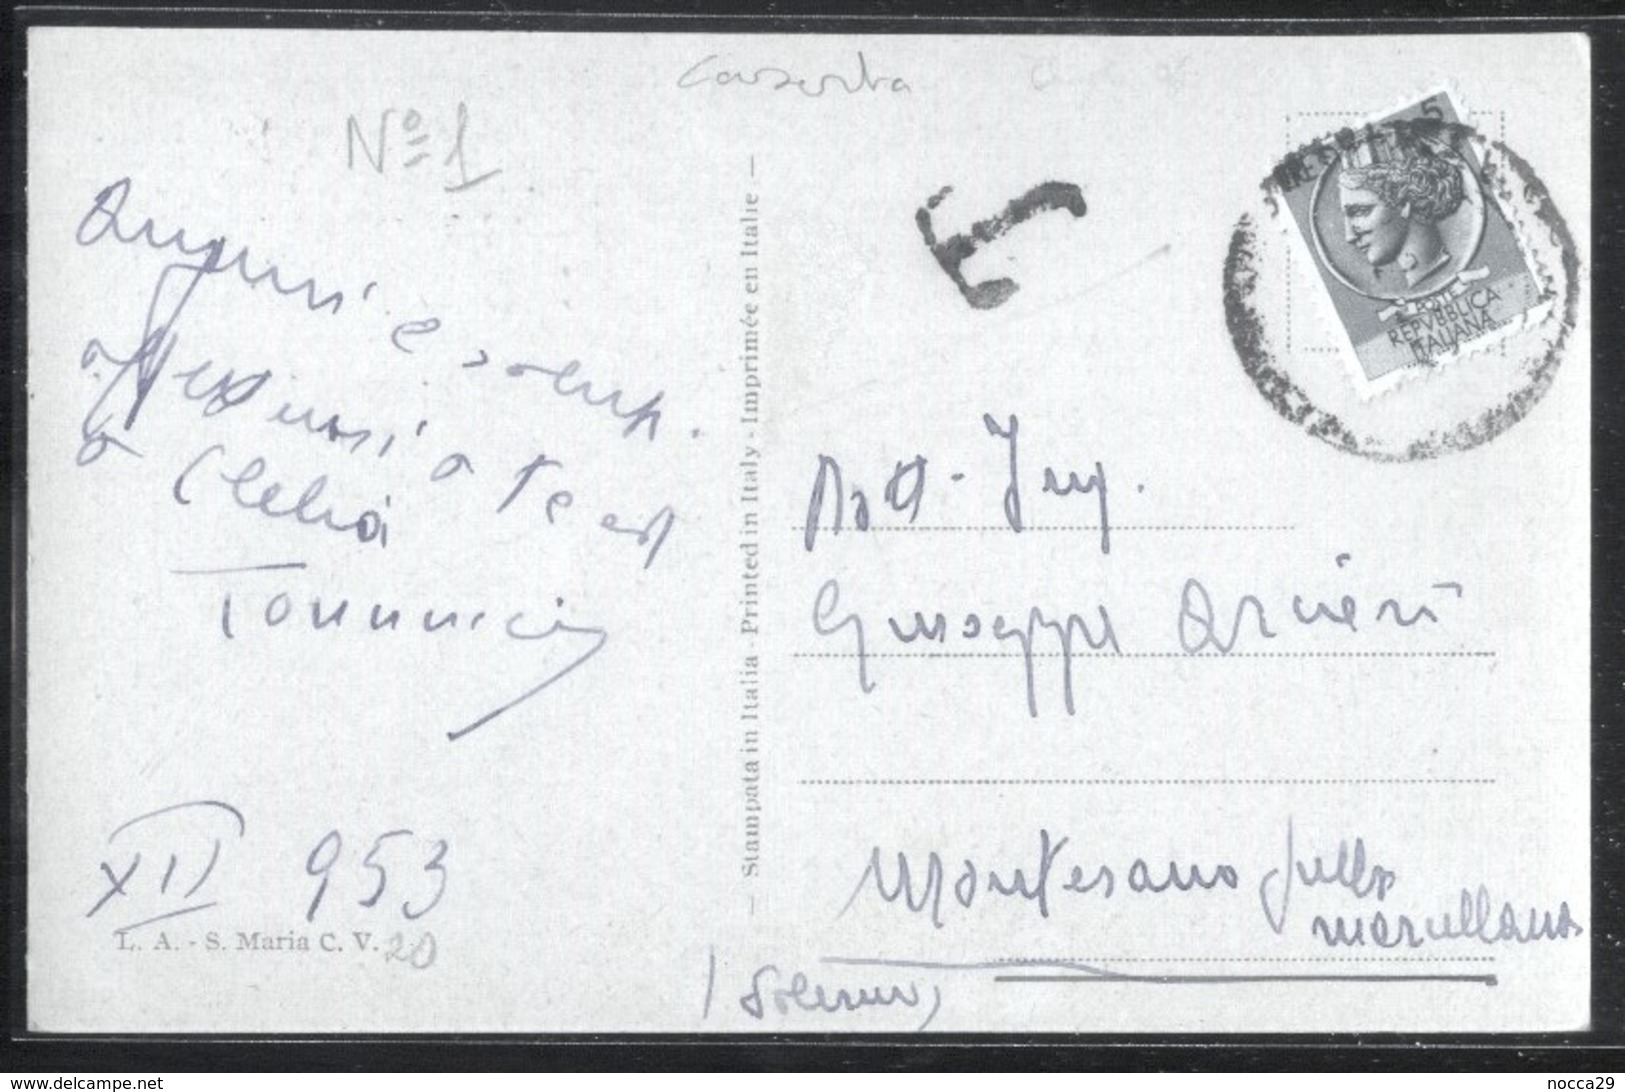 Caserta
Nº 1
Auguri e salup.
affettuosi a te ed
a Clelia
Tommasino
XII 953
L. A. - S. Maria C. V.
20
— Stampata in Italia - Printed in Italy - Imprimée en Italie —
T
5
POSTE
REPVBBLICA
ITALIANA
Dott. Ing.
Giuseppe Arcieri
Montesano sulla
marcellana
(Salerno)
www.delcampe.net
nocca29